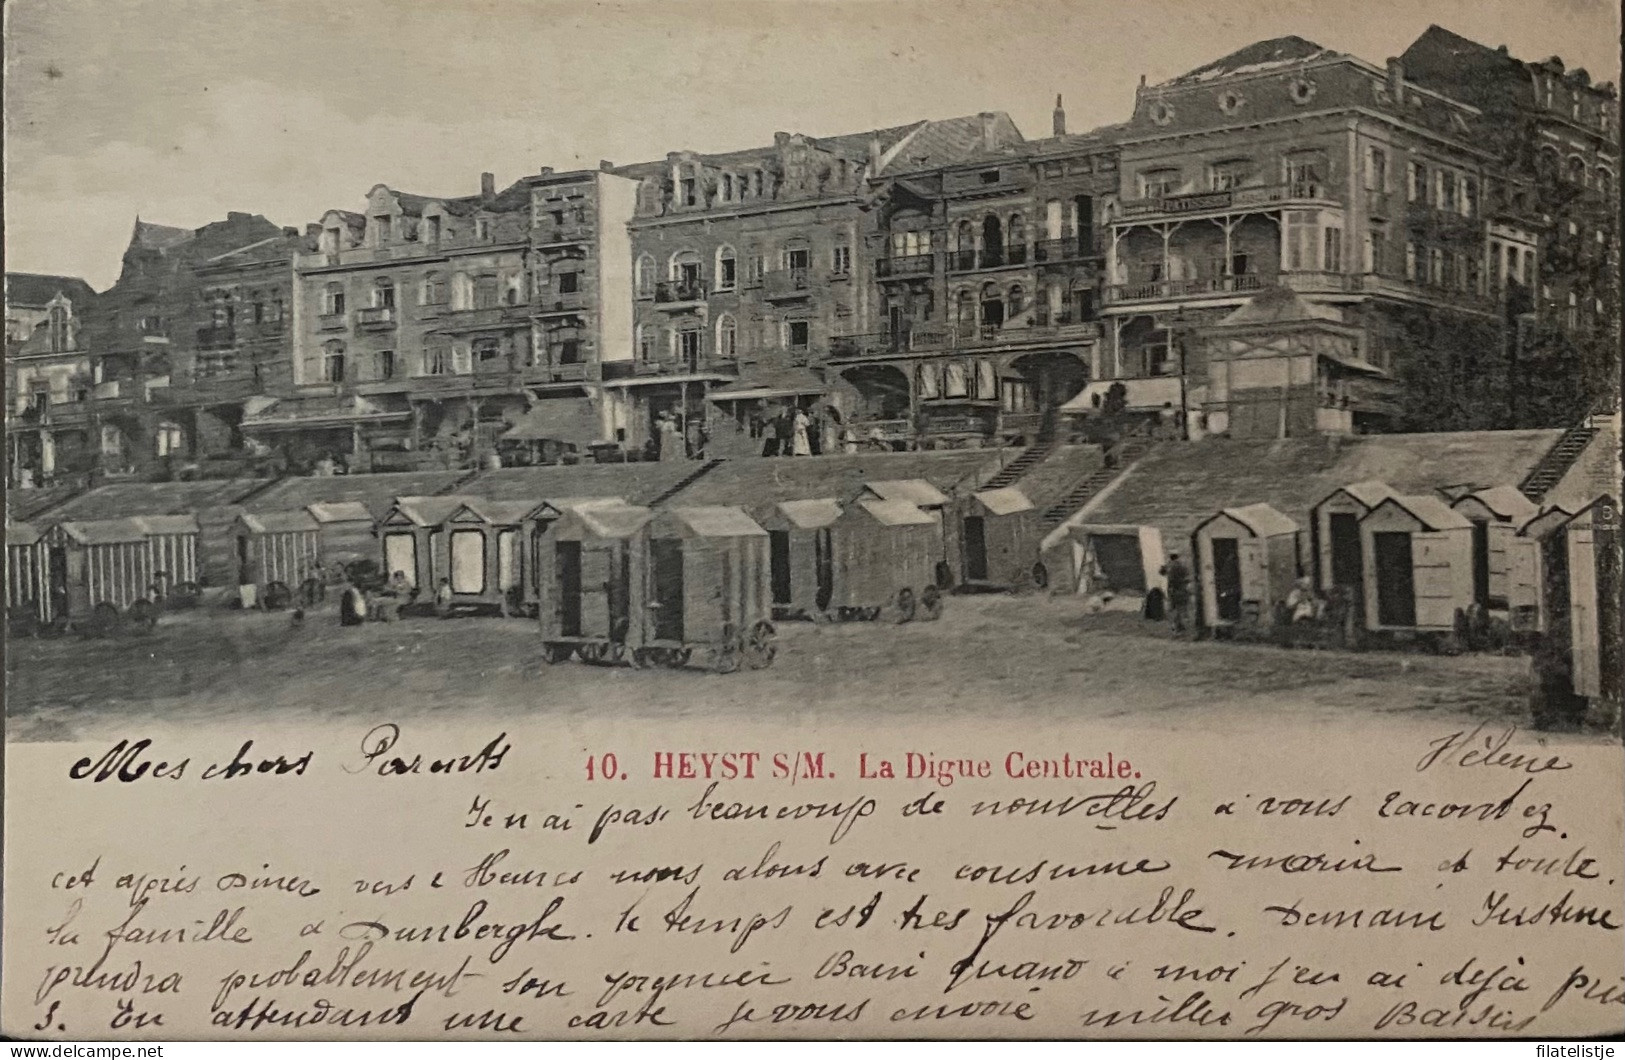 PATISSERIE
10. HEYST S/M. La Digue Centrale.
Mes chers Parents
Hélène
Je n ai pas beaucoup de nouvelles a vous racontez.
cet après Diner vers 2 Heures nous alons avec cousume maria et toute
la famille a Dunbergke. le temps est tres favorable. Demain Justine
prendra probablement son premier Bain quand à moi j'en ai dejà pris
3. En attendant une carte je vous envoie miller gros Baisers
filatelistje